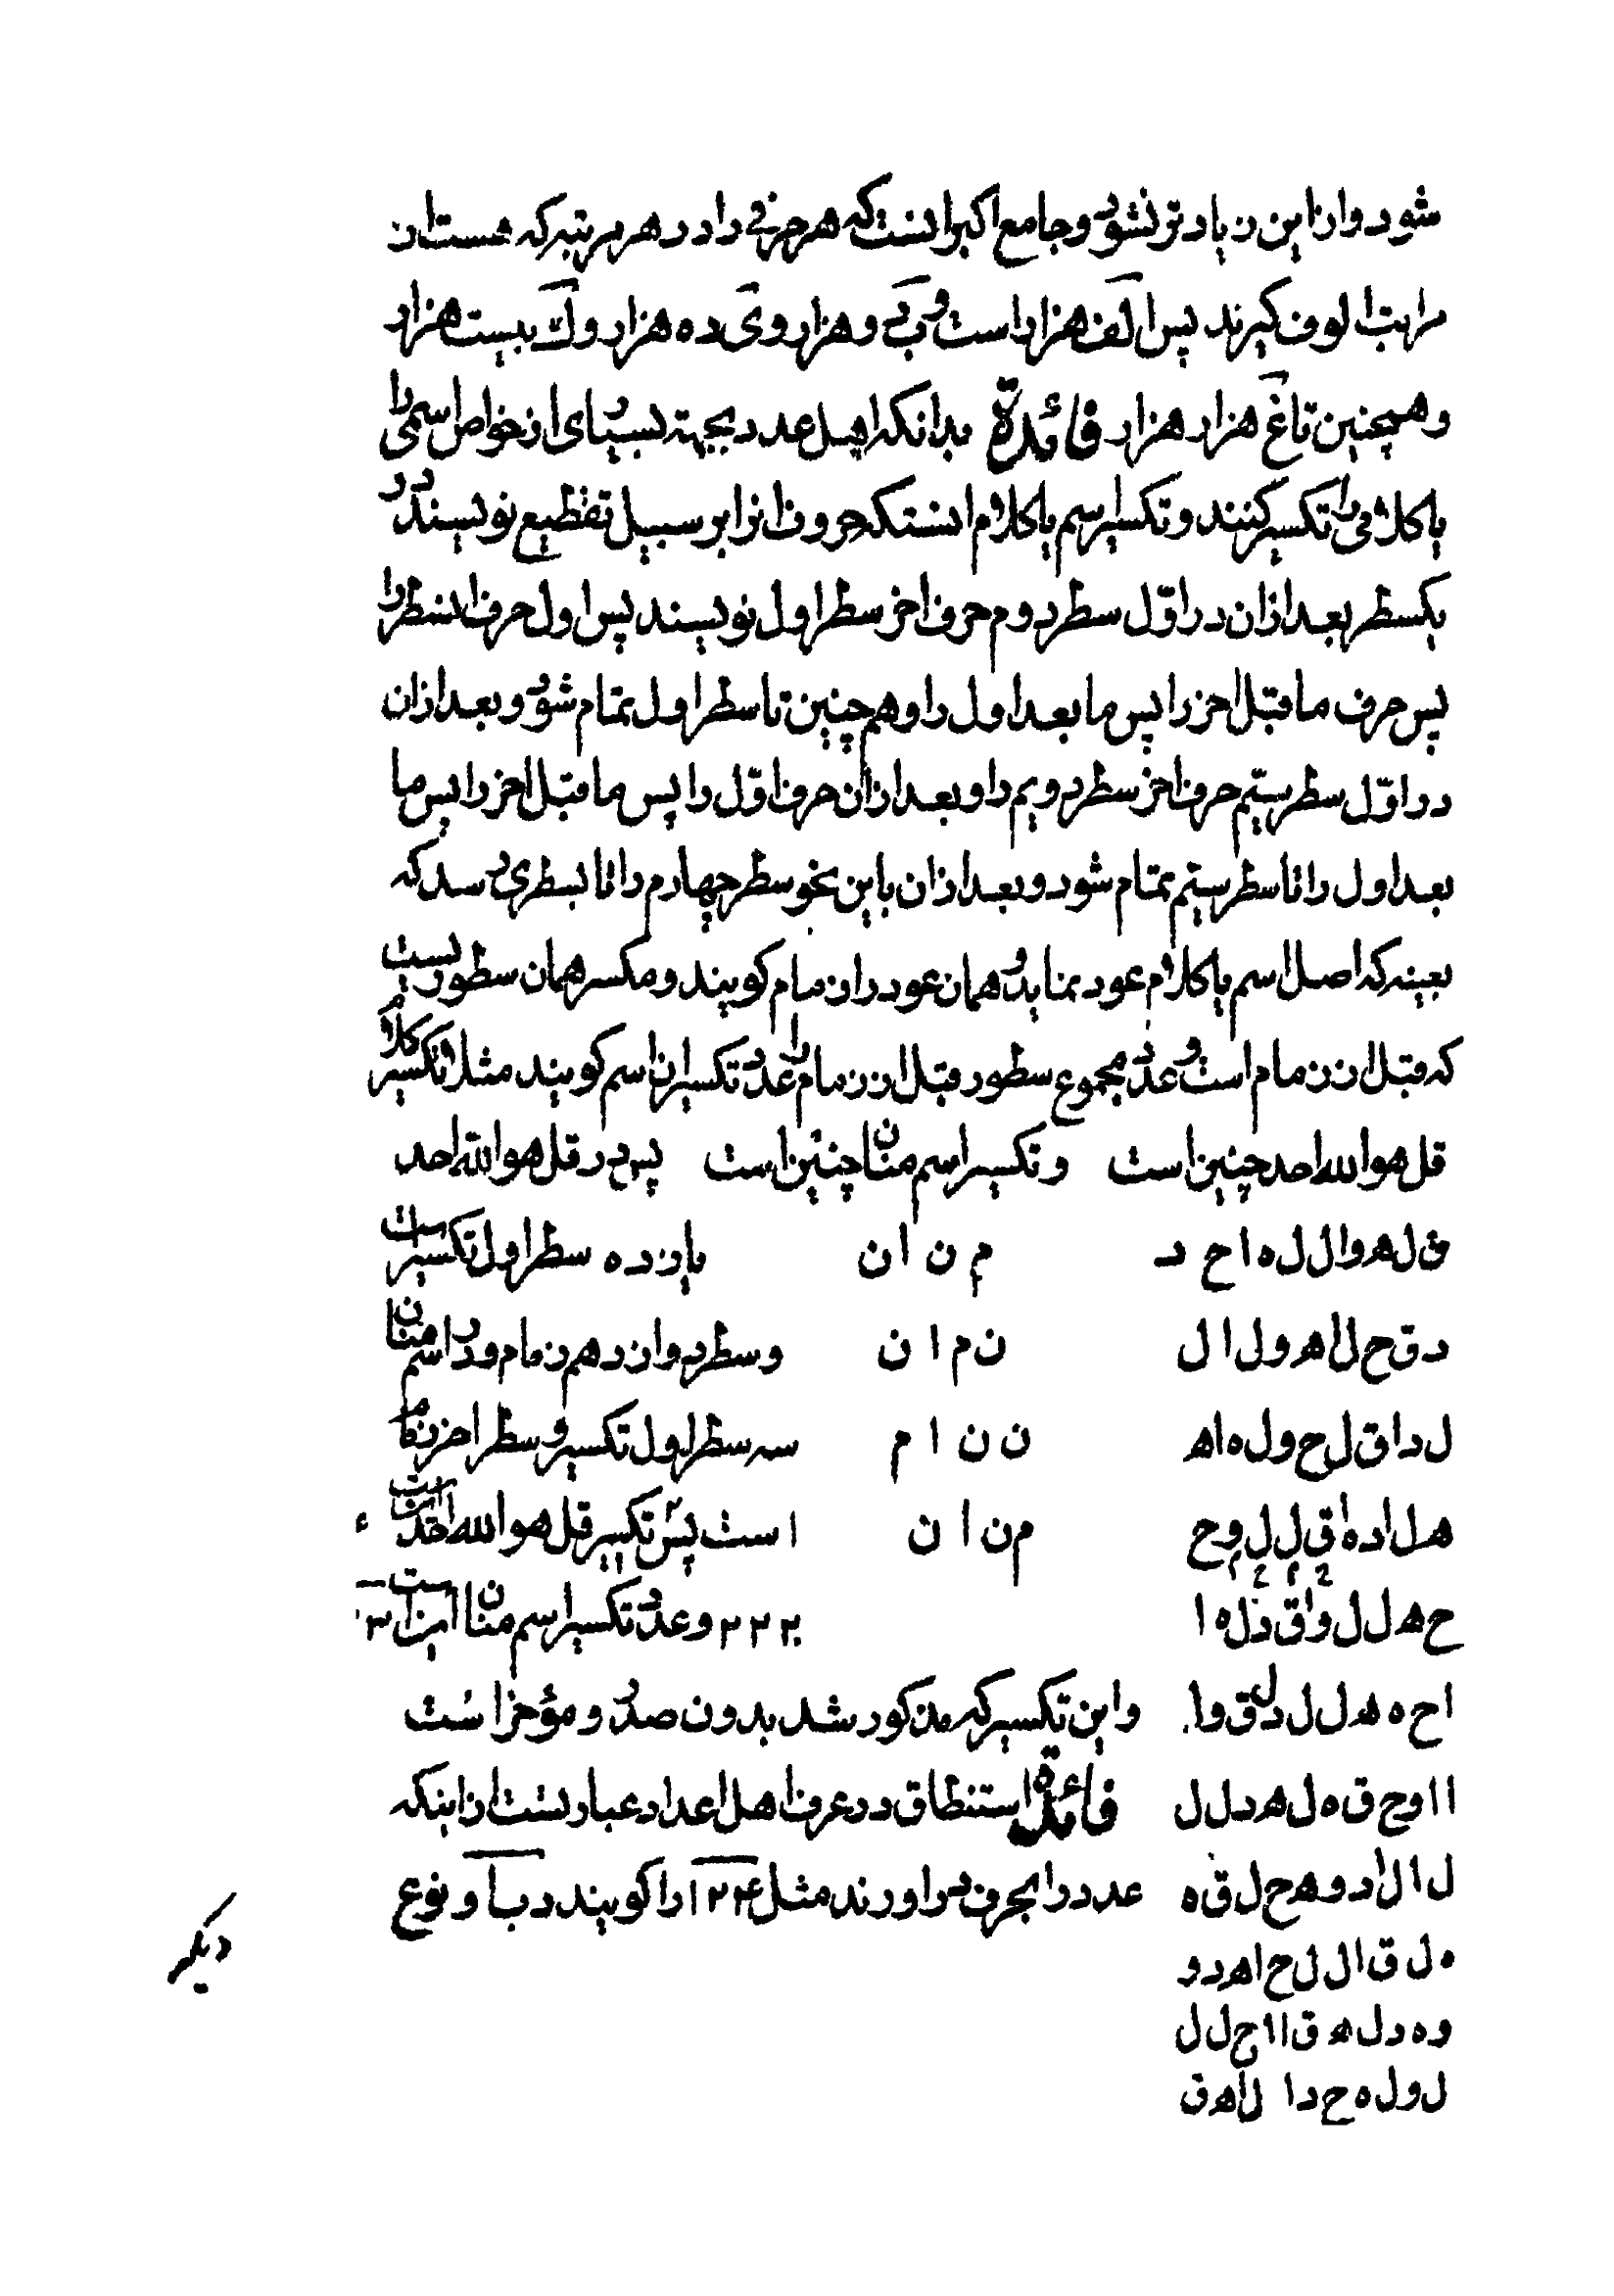 شود و از این زیادتر نشود و جامع اکبر انست که هر حرفی را در هر مرتبه که هست از
مراتب الوف گیرند پس الف هزار است و ب دو هزار و ی ده هزار و ک بیست هزار
و همچنین تا غ هزار هزار فائدة بدانکه اهل عدد بجهته بسیاری از خواص اسمی را
یا کلامی را تکسیر کنند و تکسیر اسم یا کلام انستکه حروف انرا بر سبیل تقطیع نویسند در
یکسطر بعد از ان در اوّل سطر دوم حرف اخر سطر اول نویسند پس اول حرف انسطر را
پس حرف ما قبل اخر را پس ما بعد اول را و هم چنین تا سطر اول تمام شود و بعد از ان
در اوّل سطر سیّم حرف اخر سطر دویم را و بعد از ان حرف اوّل را پس ما قبل اخر را پس ما
بعد اول را تا سطر سیّم تمام شود و بعد از ان باین نحو سطر چهارم را تا بسطری رسد که
بعینه که اصل اسم یا کلام عود نماید و همان عود را زمام کویند و مکسر همان سطوریست
که قبل از زمام است و عدد مجموع سطور قبل از زمام را عدد تکسیر ان اسم کویند مثلا تکسیر کلام
قل هو الله احد چنین است و تکسیر اسم منان چنین است پس در قل هو الله احد
ق ل ه و ا ل ل ه ا ح د م ن ا ن یازده سطر اول تکسیر است
د ق ح ل ا ه ه و ل ا ل ن م ا ن و سطر دوازدهم زمام و در اسم منان
ل د ا ق ل ح و ل ه ا ه ن ن ا م سه سطر اول تکسیر و سطر اخر زمام
ه ل ا د ه ا ق ل ل و ح م ن ا ن است پس تکسیر قل هو الله احد
ح ه ل ل و ا ق د ل ه ا و عدد تکسیر اسم منان این است ۳
ا ح ه ه ل ل د ل ق و ا و این تکسیر که مذکور شد بدون صدر و مؤخر است
ا ا و ح ق ه ل ه د ل ل فائدة استنطاق در عرف اهل اعداد عبارتست از اینکه
ل ا ل ا د و ه ح ل ق ه عدد را بحرف در اورند مثل را کویند و نوع
ه ل ق ا ل ل ح ا ه د و
و ه د ل ه ق ا ا ح ل ل
ل و ل ه ح د ا ل ا ه ق
دیکر